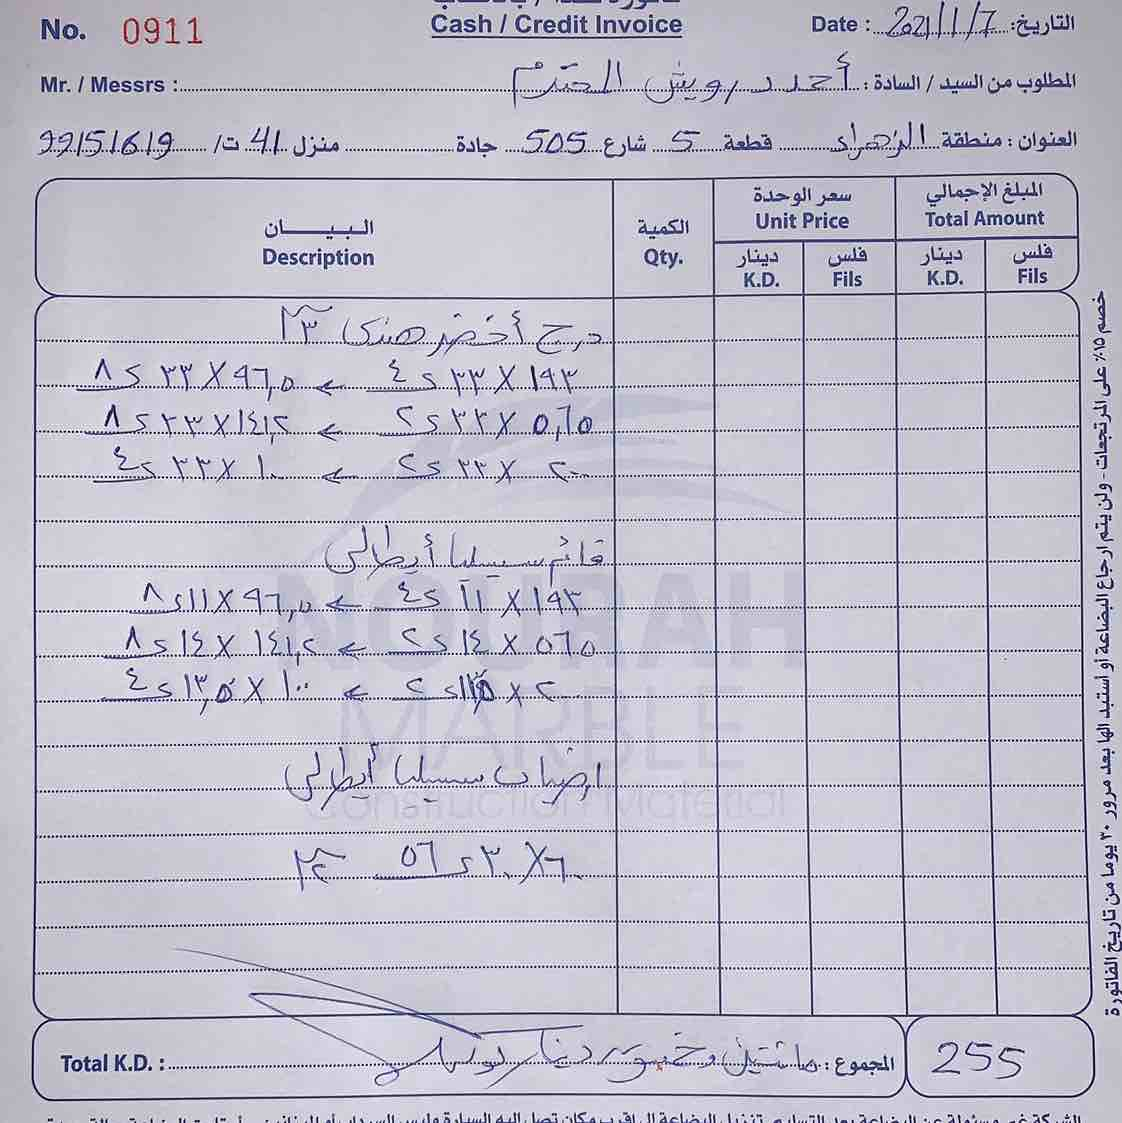 No. 0911
Cash / Credit Invoice
Date : 2021/1/7 التاريخ:
Mr. / Messrs : أحمد درويش المحترم المطلوب من السيد / السادة :
العنوان : منطقة الزهراء قطعة 5 شارع 505 جادة منزل 41 ت/ 99151619
البيــــــان
Description
الكمية
Qty.
سعر الوحدة
Unit Price
المبلغ الإجمالي
Total Amount
دينار
K.D.
فلس
Fils
دينار
K.D.
فلس
Fils
درج أخضر هندي ٣سم
١٩٣ X ٣٣ ك ٤ ← ٩٦,٥ X ٣٣ ك ٨
٥,٦٥ X ٣٣ ك ٢ ← ١٤١,٢ X ٣٣ ك ٨
٢٠٠ X ٣٣ ك ٢ ← ١٠٠ X ٣٣ ك ٤
قائم سيسليا أيطالي
١٩٣ X ١١ ك ٤ ← ٩٦,٥ X ١١ ك ٨
٥٦٥ X ١٤ ك ٢ ← ١٤١,٢ X ١٤ ك ٨
X ك ٢ ← ١٠٠ X ١٣,٥ ك ٤
ارضيات سيسليا أيطالي
٦٠ X ٣٠ ك ٥٦ ٢سم
NOURAH
MARBLE
Construction Material
خصم ١٥٪ على المرتجعات - ولن يتم ارجاع البضاعة أو استبدالها بعد مرور ٣٠ يوما من تاريخ الفاتورة
Total K.D. : المجموع : مائتين وخمسة دينار 255